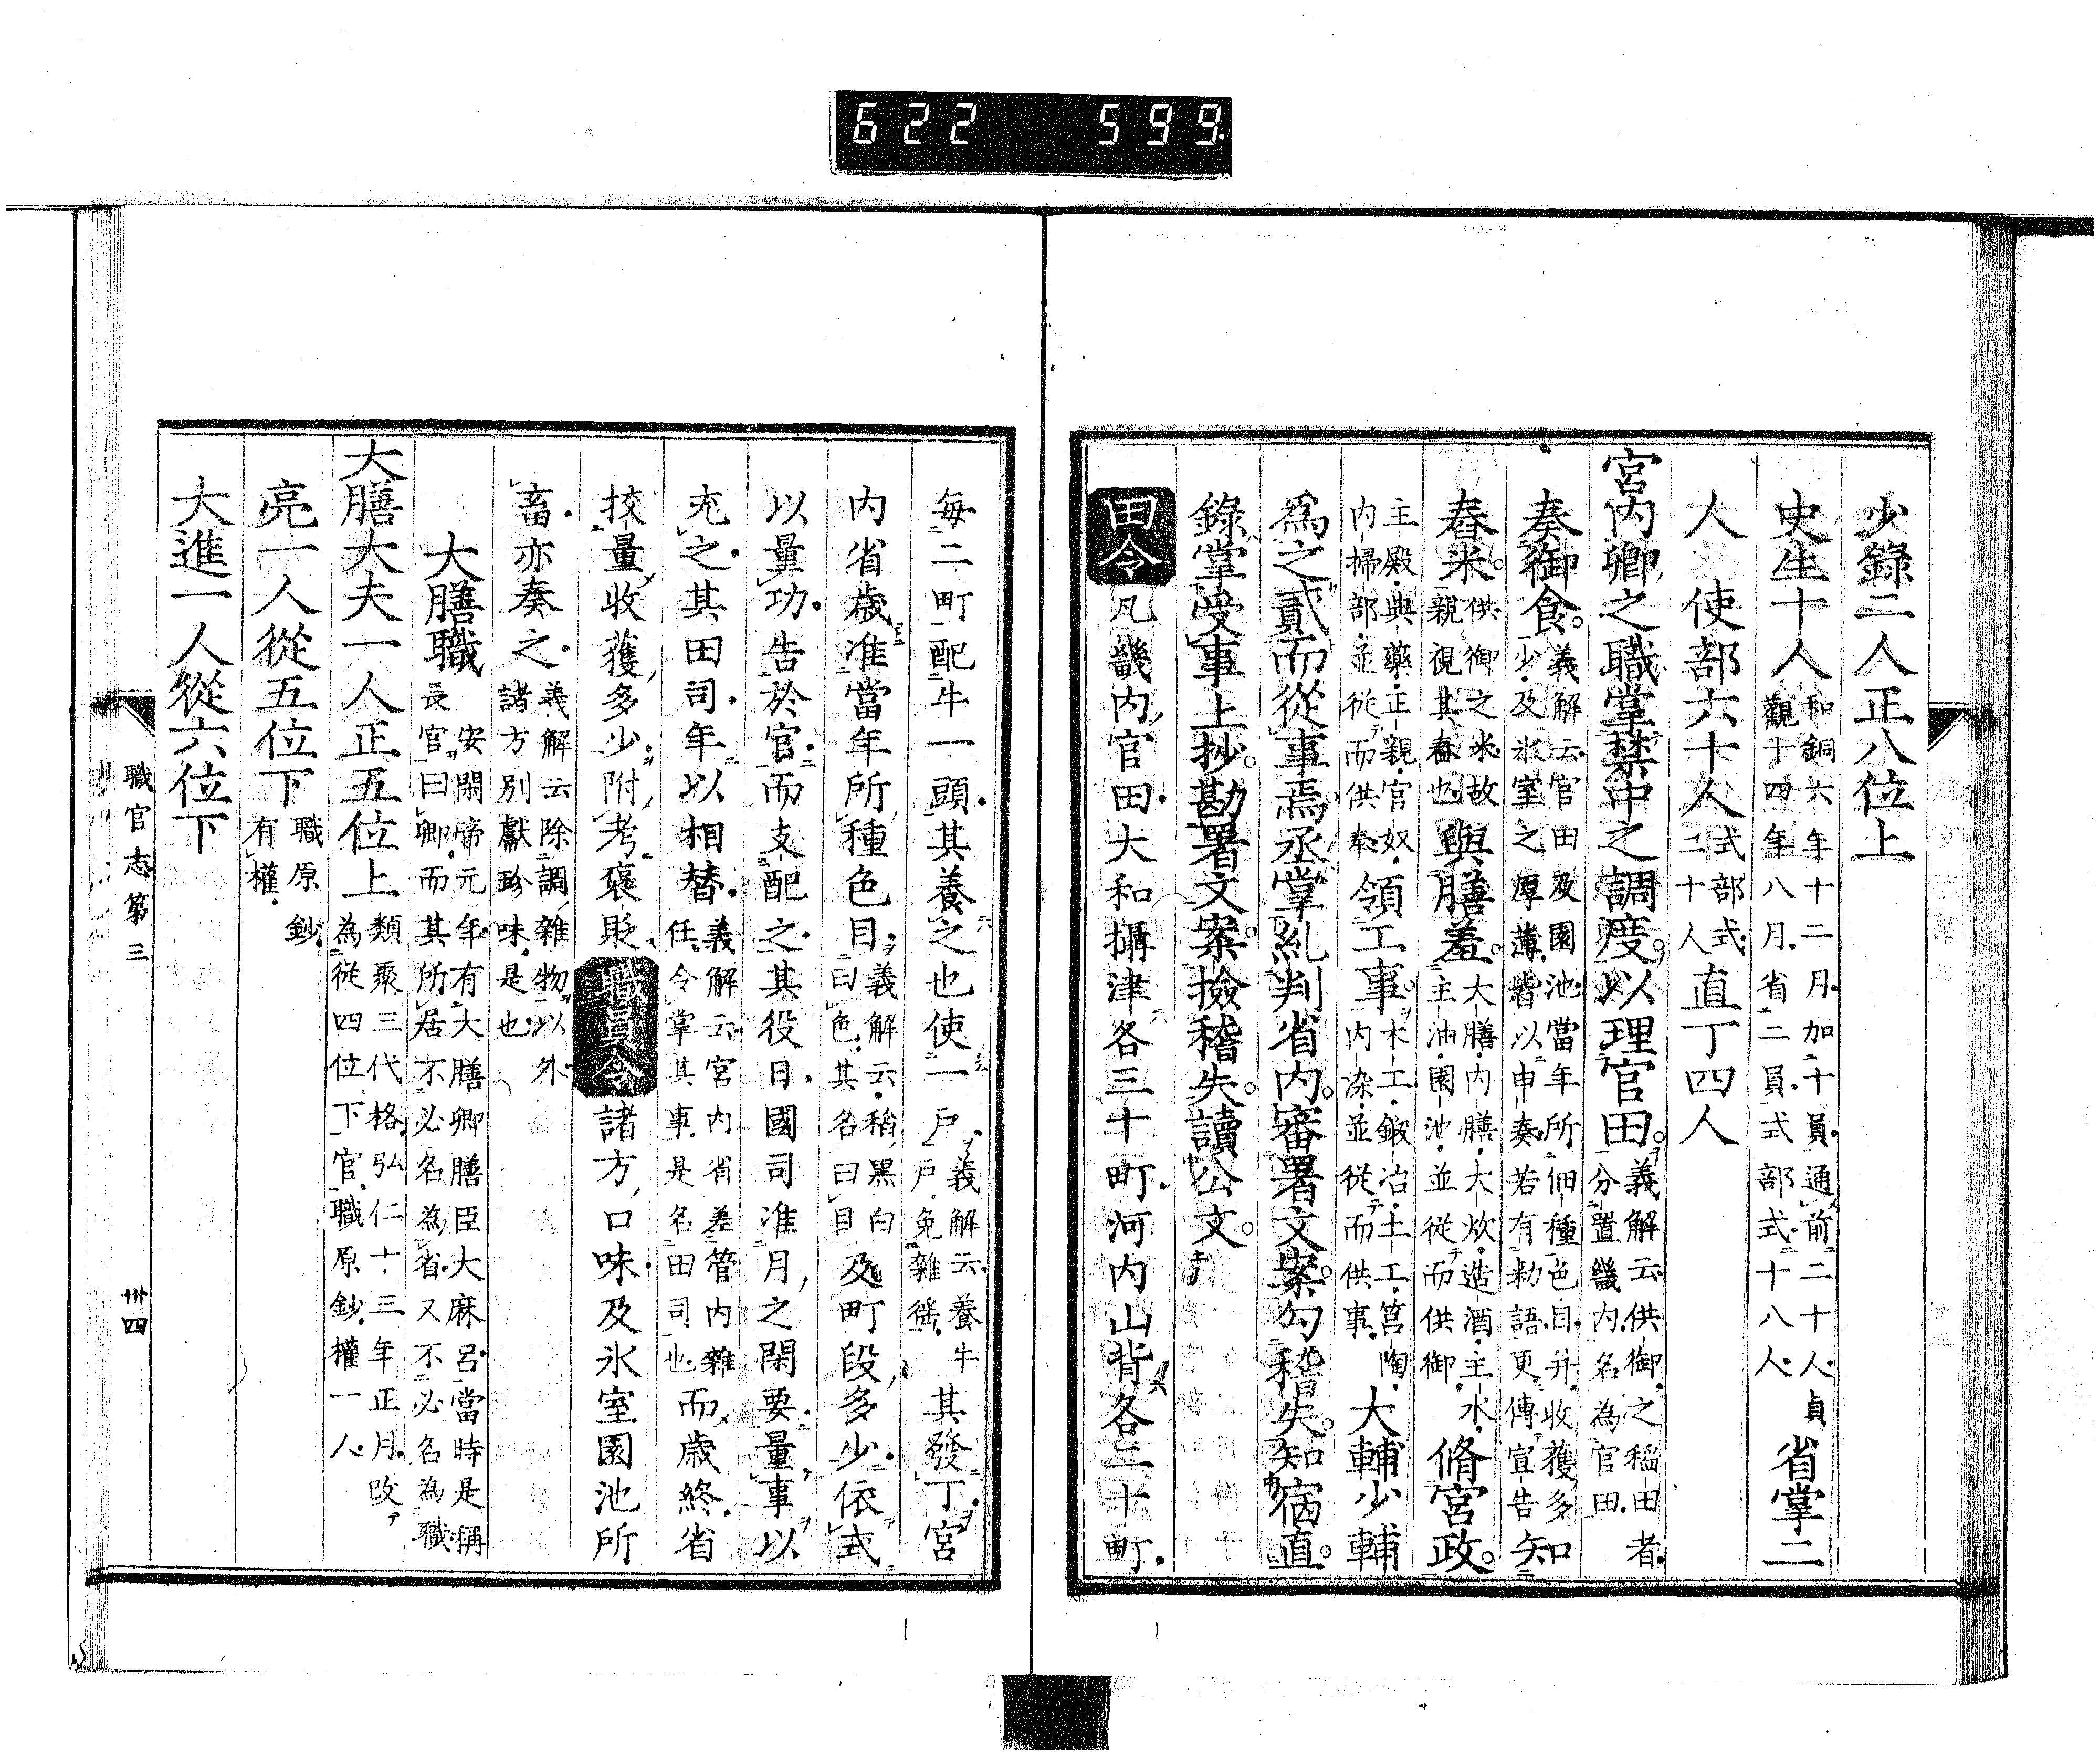 622 599
少錄二人正八位上
史生十人和銅六年十二月加十員通前二十人貞觀十四年八月省二員式部式十八人省掌二
人 使部六十人式部式三十人直丁四人
宮內卿之職掌禁中之調度以理官田義解云供御之稻田者分置畿內名為官田
奏御食義解云官田及園池當年所佃種色目并收獲多少及氷室之厚薄皆以申奏若有勅語更傳宣告知
舂米供御之米故親視其舂也與膳羞大膳內膳大炊造酒主水主油園池並從而供御脩宮政
主殿典藥正親官奴內掃部並從而供奉領工事木工鍛冶土工筥陶內染並從而供事大輔少輔
爲之貳而從事焉丞掌糺判省內審署文案勾稽失知宿直
錄掌受事上抄勘署文案撿稽失讀公文
田令凡畿內官田大和攝津各三十町河內山背各二十町
每二町配牛一頭其養之也使一戶義解云養牛戶免雜徭其發丁宮
內省歲准當年所種色目義解云稻黑白曰色其名曰目及町段多少依式
以量功告於官而支配之其役日國司准月之閑要量事以
充之其田司年以相替義解云宮內省差管內雜任令掌其事是名田司也而歲終省
挍量收獲多少附考褒貶職員令諸方口味及氷室園池所
畜亦奏之義解云除調雜物以外諸方別獻珍味是也
大膳職安閑帝元年有大膳卿膳臣大麻呂當時是稱長官曰卿而其所居不必名為省又不必名為職
大膳大夫一人正五位上類聚三代格弘仁十三年正月改為從四位下官職原鈔權一人
亮一人從五位下職原鈔有權
大進一人從六位下
職官志第三
卅四